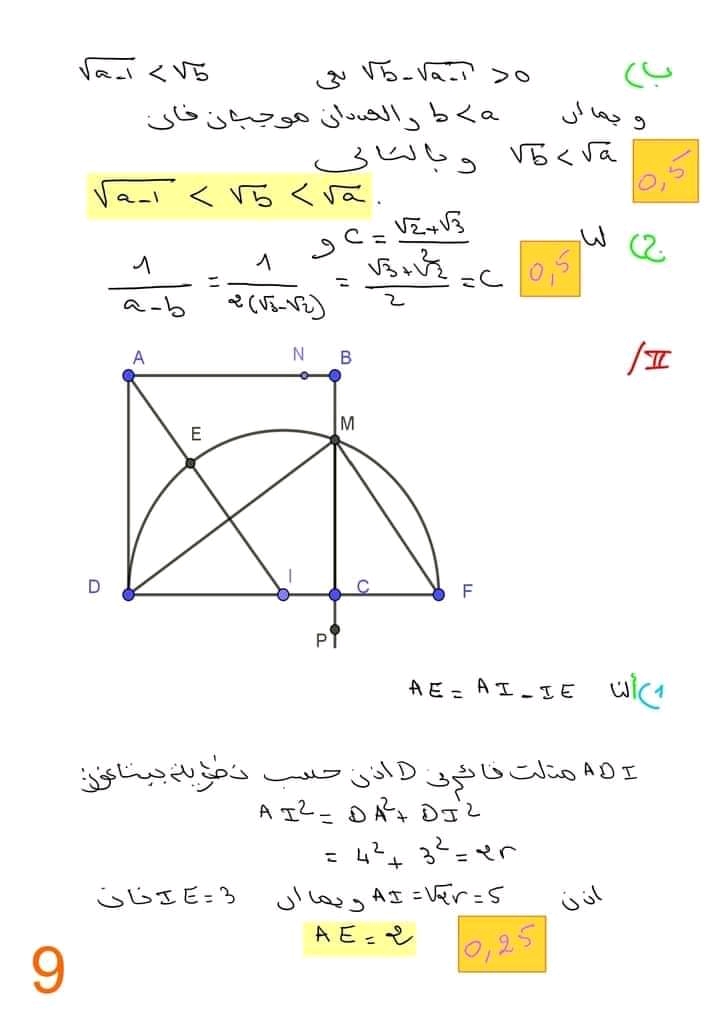 ب) √b-√a-1 >0 يعني √a-1 < √b
وبما أن b<a والعددان موجبان فإن
√b<√a وبالتالي 0,5
√a-1 < √b < √a.
2) لنا C = √2+√3/2 و 0,5
1/a-b = 1/2(√3-√2) = √3+√2/2 = C
II/
A N B
E M
D I C F
P
1) أ) لنا AE = AI - IE
ADI مثلث قائم في D إذن حسب نظرية بيتاغور
AI² = DA² + DI²
= 4² + 3² = 25
إذن AI = √25 = 5 وبما أن IE = 3 فإن
AE = 2 0,25
9